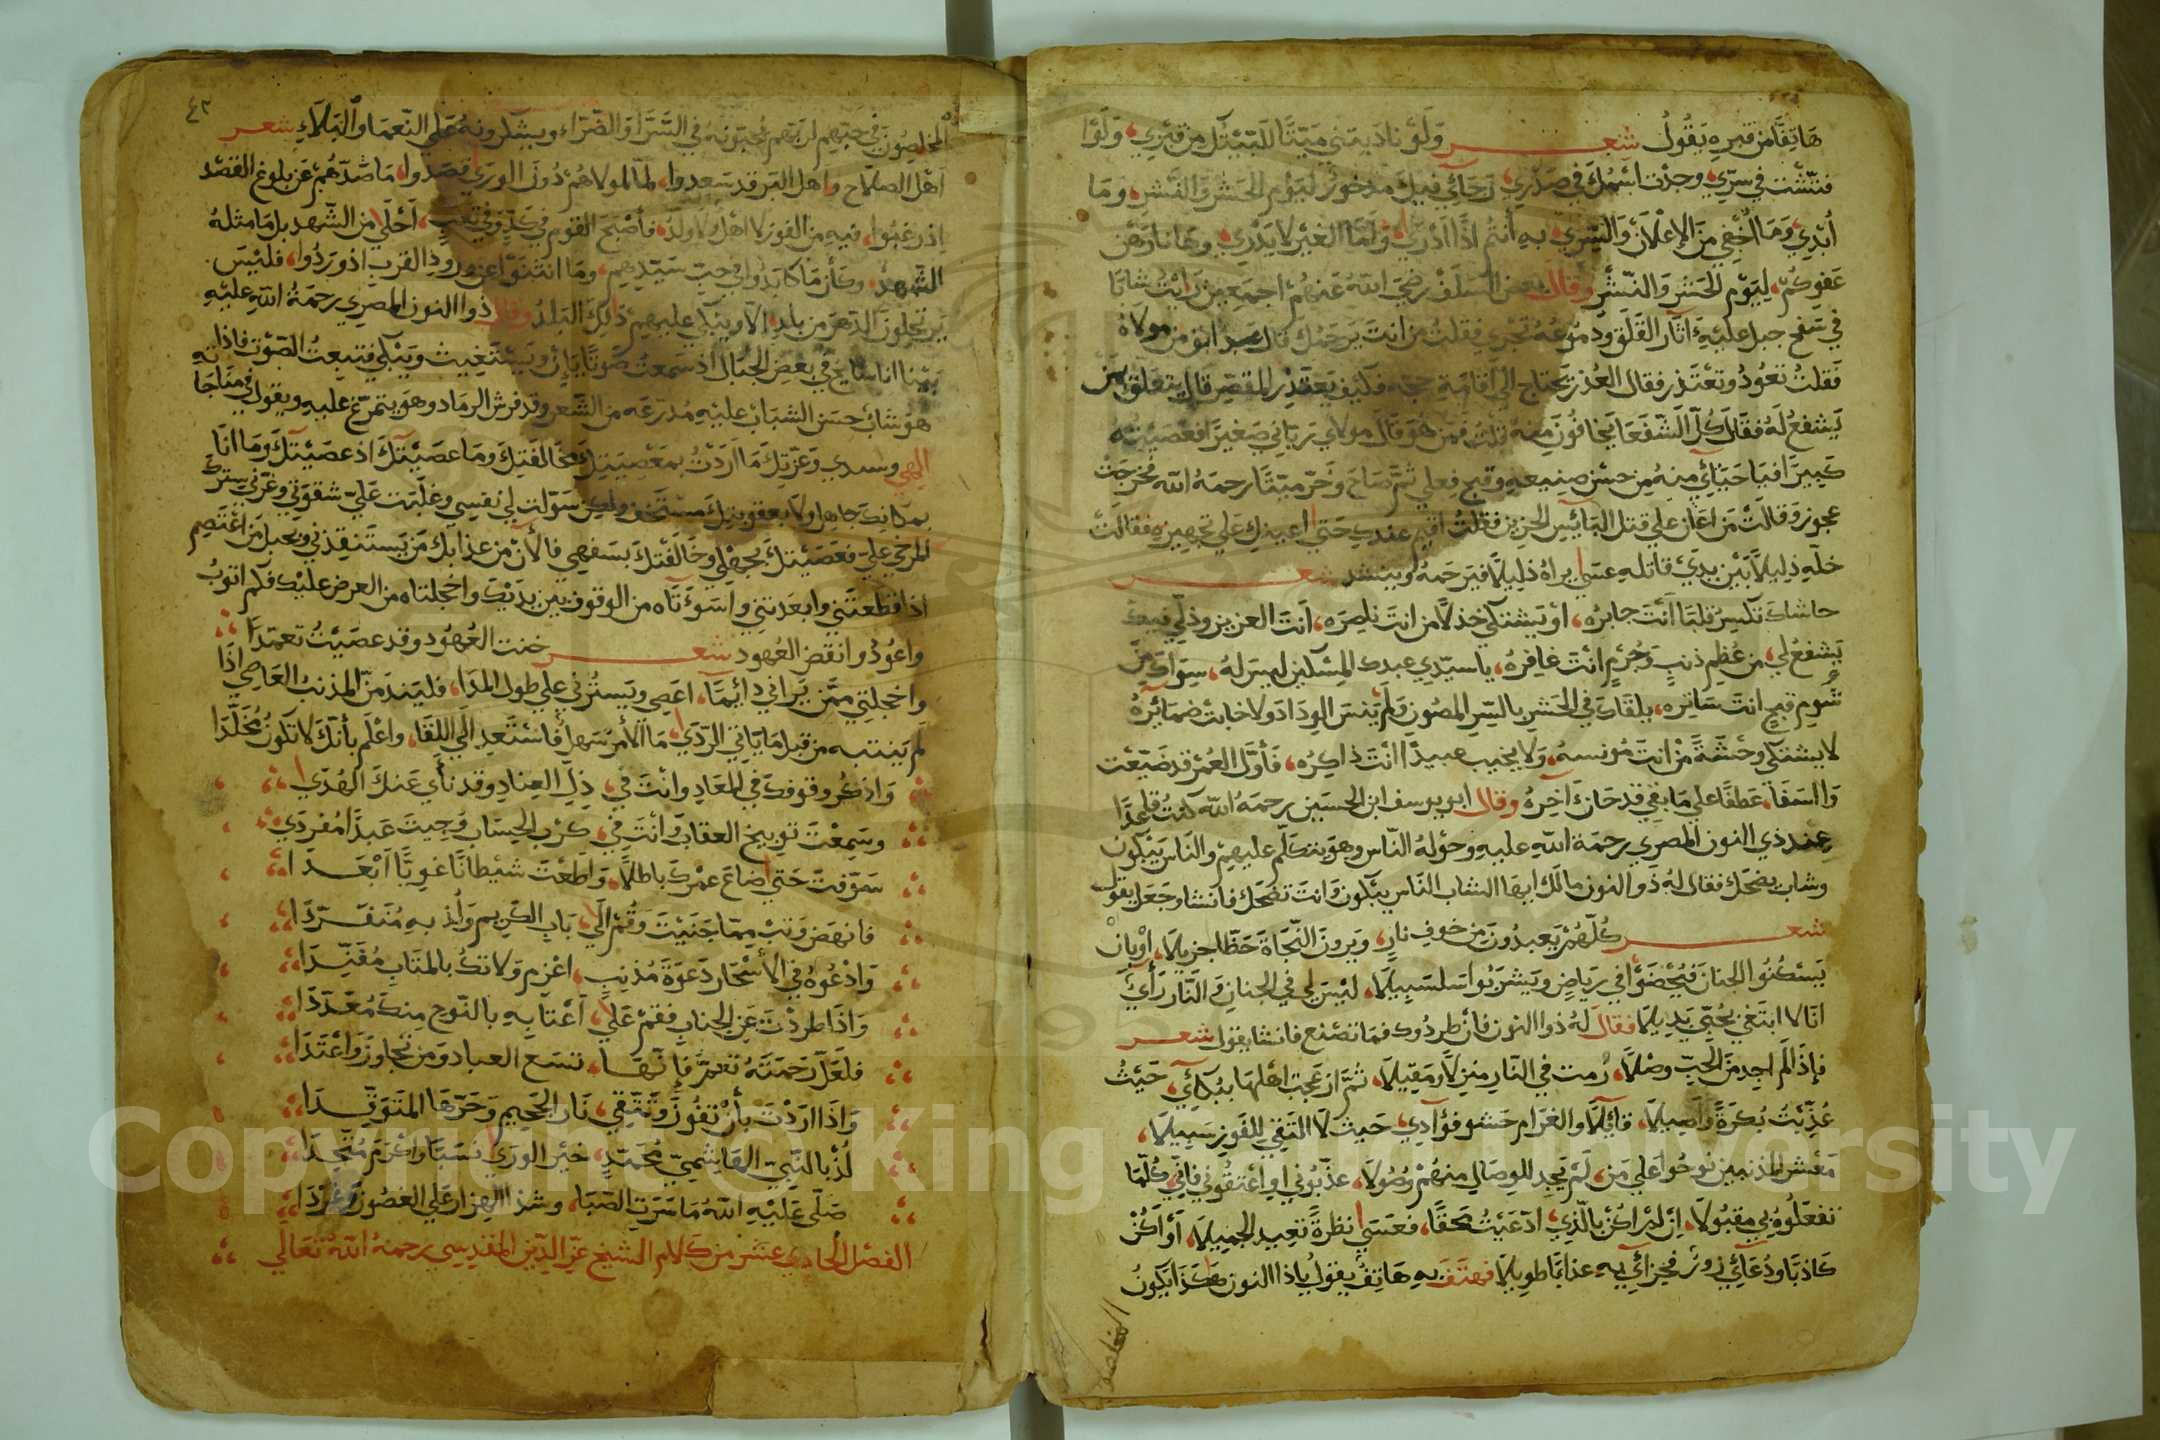 هَاتِفًا من قبره يَقُولُ شعر وَلَوْ ناديتني مَيّتًا للبّيْتُكَ من قبْري، وَلَوْا
فتّشت في سرّي وجدْت اسْمُكَ في صَدْري، رَجَائي فيكَ مدخورٌ ليَوْم الحَشْر وَالنَّشر، وَمَا
أُبْدِي وَمَا أُخفِي مِنَ الإعْلَان وَالسِّرِّي، به أنتُم اذَا أدْرِي، وَأمَّا الغَيْر لا يَدْرِي، وهَا نا رَهْن
عَفوكُم، لِيَوْم الحَشْر وَالنّشْر وقال بعض السّلَف رَضِيَ اللهُ عَنهُمْ اجمَعِين رَأيْتُ شابًّا
في سَفح جبل عليْهِ آثار القَلَق ودُمُوعُهُ تَجْري فقلتُ من انتَ يَرحَمُكَ قالَ عبد ابق من مولاهُ
فقلتُ تَعُودُ وتعْتَذر فقال العُذر يَحتاج الى اقامَة حجه فكيف يعتَذر المقصّر قال يتعلق بمن
يَشفعُ لَهُ فقال كلّ الشّفَعَا يَخافُونَ منهُ قلتُ فمن هُوَ قالَ مولاي ربّاني صَغيرًا فعَصَيْتهُ
كَبيرًا فيا حَيَائي منهُ مِن حسْن صنيعهِ وقبح فِعلي ثمّ صَاحَ وخَرّ ميّتًا رحمَهُ اللّه فخرجَتْ
عجوز وقالَتْ مَن اعَانَ علي قتل البَائِس الحَزين فقلتُ اقيم عندكِ حَتى اعينكِ عَلي تجهيزه فقالَتْ
خلّهِ ذليلًا بَيْن يدَيْ قاتله عسَى يراهُ ذليلًا فيرحمهُ وينشد شعر
حاشاكَ تكسِرُ قلبًا أنْتَ جابرُه، أوْ يَشتكي خذلًا من انتَ ناصِرَه، أنتَ العزيز وذلّي فيكَ
يَشفعُ لي، من عُظم ذنبٍ وَجُرمٍ انْتَ غافرهُ، ياسيّدي عبدك المِسْكين ليسَ لهُ، سِوَاكَ من
شُوم قبحٍ انتَ ساترِه، بلقاكَ في الحَشر بالسِّر المصُون وَلم يَنسَ الوِدَاد وَلا خابتْ ضمَائرهُ
لا يشتكي وحْشَةً مَنْ انتَ مُونسهُ، وَلا يخيبُ عبيدًا انتَ ذاكِرُه، فَأوّل العُمْر قد ضَيّعْت
وَااسَفا، عَطفًا علي مَا بقي قد حَانَ آخِرهُ وقال ابو يوسف ابن الحسَين رحمَهُ اللّه كنتُ قاعدًا
عِند ذي النون المصري رحمَة اللّه عليهِ وحَوْلهُ النّاس وهوَ يتكلّم عليهِمْ والنّاس يبْكُون
وشاب يضحَك فقال لهُ ذو النون مالكَ ايهَا الشاب النّاس يبْكُون وَانتَ تضحَك فانشا وجَعل يقول
شعر كُلّهُمْ يَعبدُونَ من خوفِ نارٍ، وَيرونَ النّجَاةَ حَظّا جزيلا، أوْ بانْ
يَسْكُنُوا الجنانَ فيُحْضَوْا في رياضٍ ويَشرَبُوا سَلسَبِيلا، ليْسَ لي في الجنانِ وَالنّار رَأيٌ
انَا لا ابتَغي بحُبّي بَديلا فقالَ لهُ ذو النون فان طردُوك فمَا تصْنع فانشا يقول شعر
فإذَا لَم اجِد منَ الحبّ وصْلًا، رُمت في النّار منزلًا ومَقيلا، ثمّ ازعَجت اهْلهَا ببُكائي، حَيْثُ
عُذّبْتُ بُكرَةً وَاصيلا، قائلًا والغَرام حَشو فؤآدي، حَيث لا المتّقي للفوز سَبيلا،
مَعْشر المذنبين نوحُوا علي مَن، لَمْ يَجد للوِصَالِ منهُمْ وُصُولا، عذّبُوني او اعْتقُوني فاني كُلّمَا
تفعَلُوهُ بي مقبُولا، ان لم اكُن بالّذي ادّعَيْتُ محقًا، فعَسَى نظرَةً تعِيد الجَميلا، أوْ اكُنْ
كاذبًا ودُعَائي زورٌ فجزائي بهِ عذابًا طويلا فهتَفَ بهِ هَاتفٌ يقولُ ياذا النون هَكذَا يَكُونُ
المخلصون
٤٢
المخلصُونَ في حبّهم لربّهم يُحبّونهُ في السّرّا والضّرّاء ويشكرونهُ عَلي النّعمَا والبَلاءِ شعر
اهْل الصلاح واهْل البر قد سَعدوا، لمّا لمولاهُمْ دُونَ الورَى قصَدوا، مَا صَدّهُمْ عَن بلوغ القصْد
اذ رغبُوا، فيهِ من الفوز لا أهْل ولا ولدُ، فأصْبَح القوم في كدٍّ وفي تعَبٍ، أحْلَي من الشّهد بل مَا مثلهُ
الشّهدُ، وكَأن مَا كابَدُوا في حبّ سَيّدِهِم، ومَا انثنَوْا عن ورود القرب اذ وَرَدُوا، فليْسَ
يرتحلونَ الدّهرَ من بلدٍ، الّا ويَبكي عليهِمْ ذلكَ البَلدُ وقال ذو النون المصري رحمَة اللّه عليْهِ
بيْنا انا سَائحٌ في بَعض الجبَال اذ سَمعتُ صَوْتًا يأنّ ويَسْتغيث ويَبْكي فتبعتُ الصّوْت فاذا به
هوَ شابٌ حسَن الشبَابْ عليْهِ مُدرّعَه من الشّعر وقد فرش الرمَاد وهوَ يتمرّغ عليهِ ويقول في مناجَاته
الهي وسيدي وَعزّتكَ مَا ارَدْتُ بمَعْصِيَتِكَ مُخالفَتِكَ ومَا عصَيْتكَ اذ عصَيْتكَ وَمَا انَا
بمكانِكَ جاهل ولا بعقوبتِكَ مسْتخف ولكن سَوّلت لي نفسي وغلَبَت عَليّ شقوَتي وغرّني سِتركَ
المرخي عليّ فعَصَيْتكَ بجهلي وخَالَفْتكَ بسَفهِي فالآنْ من عذابكَ مَن يَستَنقِذني وبحَبل مَن اعْتَصِم
اذا قطعتَني وابعَدتني واسَوْءَتاه من الوقوف بين يدَيْكَ واخجلتاه من العرض عليْكَ فكم اتوبُ
واعُودُ وانقض العُهود شعر خنت العُهُود وقد عصَيْتُ تعمّدَا
واخجلتي ممّن يَرَاني دَائمًا، اعصِي ويَستُرُني علي طول المدَا، فليَندمَنّ المذنبُ العَاصِي اذَا
لم ينتبه من قبل مَا يَأتي الرّدَي، مَا الأمر سَهل فأسْتَعدّ الي اللقَا، واعْلَم بأنّكَ لا تكُونُ مُخَلّدَا
وَاذكُر وقوفكَ في المعَادِ وانتَ في، ذِلّ العِنادِ وقد نأي عَنكَ الهُدَى
وسَمِعْتَ توبيخ العقابِ وانتَ في، كرْب الحِسَاب وَجيتَ عَبدًا مُفردَي
سَوّفتَ حَتى ضاعَ عمْركَ باطلًا، وَاطَعْتَ شيْطانًا غويًّا ابْعَدَا
فانهَض وَتبْ ممّا جَنَيْتَ وَقُمْ الَى، بَابِ الكَريم وَلُذ بهِ مُتفَرّدَا
وَادْعُوهُ في الأسْحَار دَعوَةَ مُذنبٍ، اعْزم وَلا تكُ بالمتَابِ مُفَنّدَا
وَاذَا طردْتَ عَن الجنابِ فقمْ عَلَى، أعْتابهِ بالنّوح منكَ مُعَدّدَا
فلعَلّ رَحمَتَهُ تعمّ فإنّهَا، تسَع العبادَ وَمن تجاوزَ وَاعْتَدَا
وَاذَا ارَدْتَ بأنْ تفُوزَ وَتتّقِي، نَار الجَحيم وَحَرّهَا المتَوَقّدَا
لُذ بالنّبيّ الهَاشميّ مُحَمّدٍ، خيْر الورَى نسَبًا واكْرم مَحْتِدَا
صَلّى عَليْهِ اللّهُ مَا سَرَتِ الصّبَا، وشدَا الهزار علي الغصُون وغرّدَا
الفصْل الحَادي عشَر من كَلام الشيخ عز الدّين المقدسِي رحمهُ اللّهُ تعَالى
Copyright © King Saud University